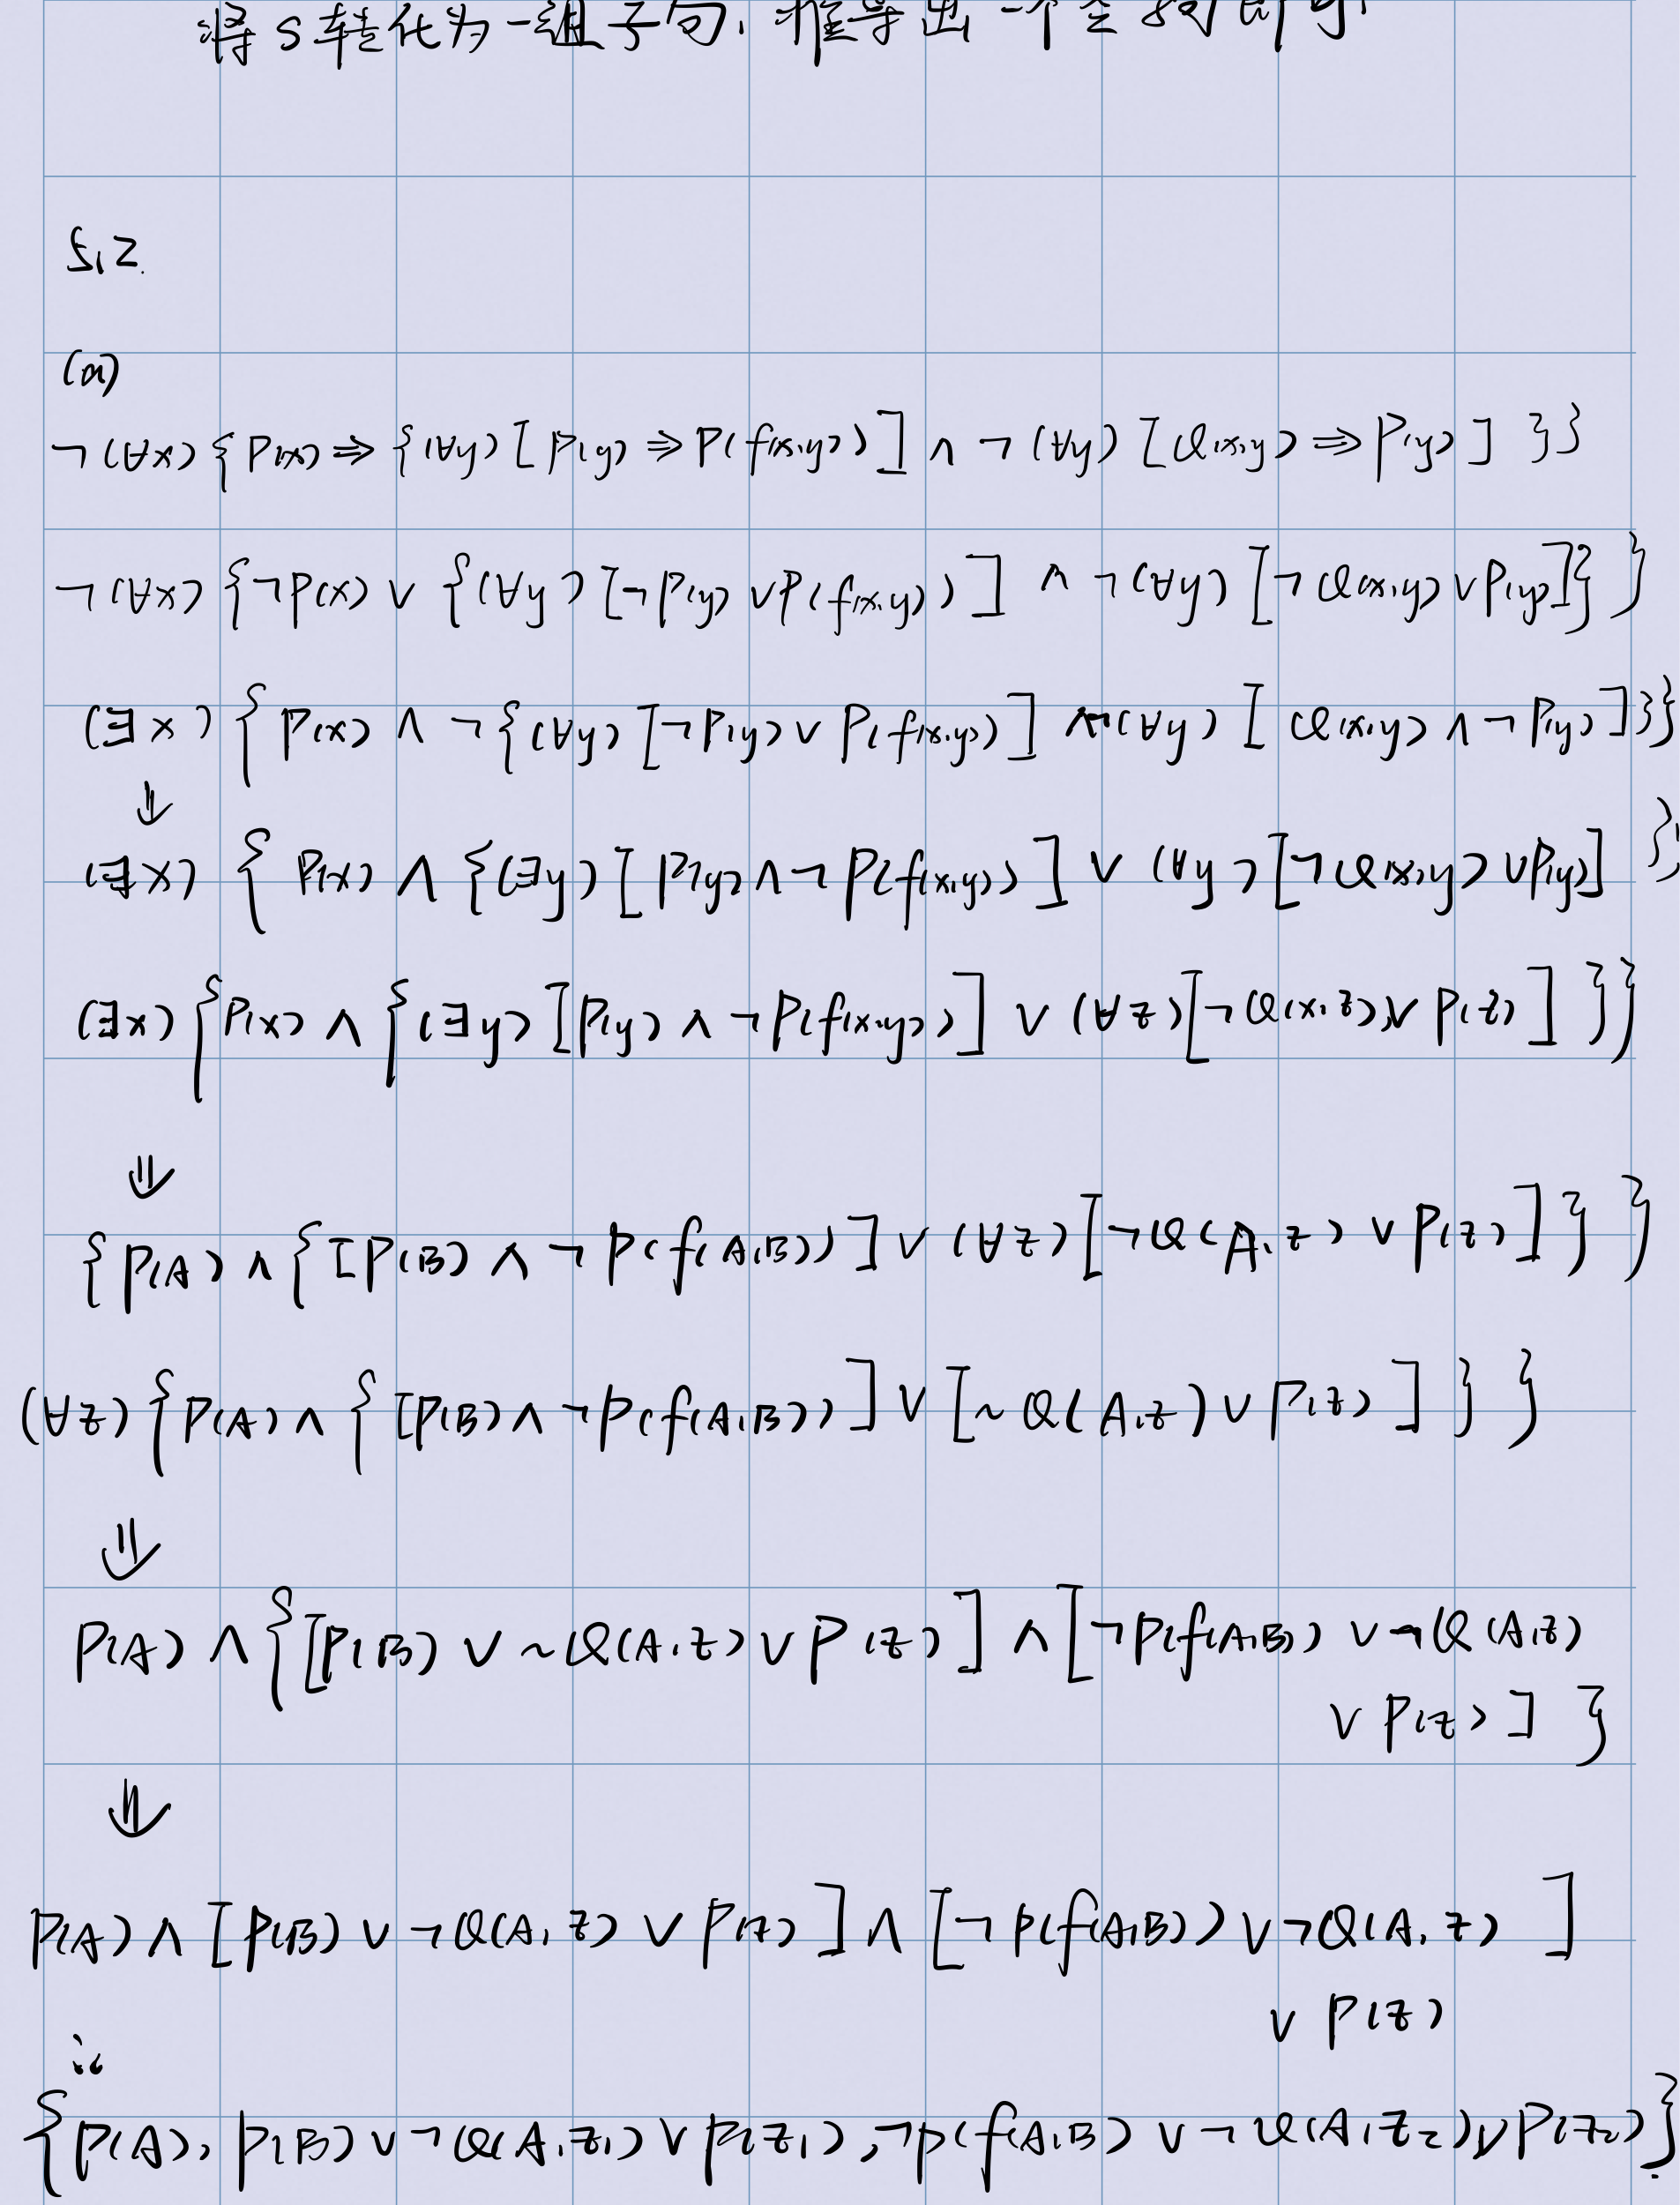 将S转化为一组子句,推导出一个空
5.2.
(a)
¬(∀x){P(x)⇒{(∀y)[P(y)⇒P(f(x,y))]∧¬(∀y)[Q(x,y)⇒P(y)]}}
¬(∀x){¬P(x)∨{(∀y)[¬P(y)∨P(f(x,y))]∧¬(∀y)[¬Q(x,y)∨P(y)]}}
(∃x){P(x)∧¬{(∀y)[¬P(y)∨P(f(x,y))]∧(∀y)[Q(x,y)∧¬P(y)]}}
⇓
(∃x){P(x)∧{(∃y)[P(y)∧¬P(f(x,y))]∨(∀y)[¬Q(x,y)∨P(y)]}}
(∃x){P(x)∧{(∃y)[P(y)∧¬P(f(x,y))]∨(∀z)[¬Q(x,z)∨P(z)]}}
⇓
{P(A)∧{[P(B)∧¬P(f(A,B))]∨(∀z)[¬Q(A,z)∨P(z)]}}
(∀z){P(A)∧{[P(B)∧¬P(f(A,B))]∨[~Q(A,z)∨P(z)]}}
⇓
P(A)∧{[P(B)∨~Q(A,z)∨P(z)]∧[¬P(f(A,B))∨¬Q(A,z)
∨P(z)]}
⇓
P(A)∧[P(B)∨¬Q(A,z)∨P(z)]∧[¬P(f(A,B))∨¬Q(A,z)]
∨P(z)
∴
{P(A),P(B)∨¬Q(A,z₁)∨P(z₁),¬P(f(A,B)∨¬Q(A,z₂)∨P(z₂)}.